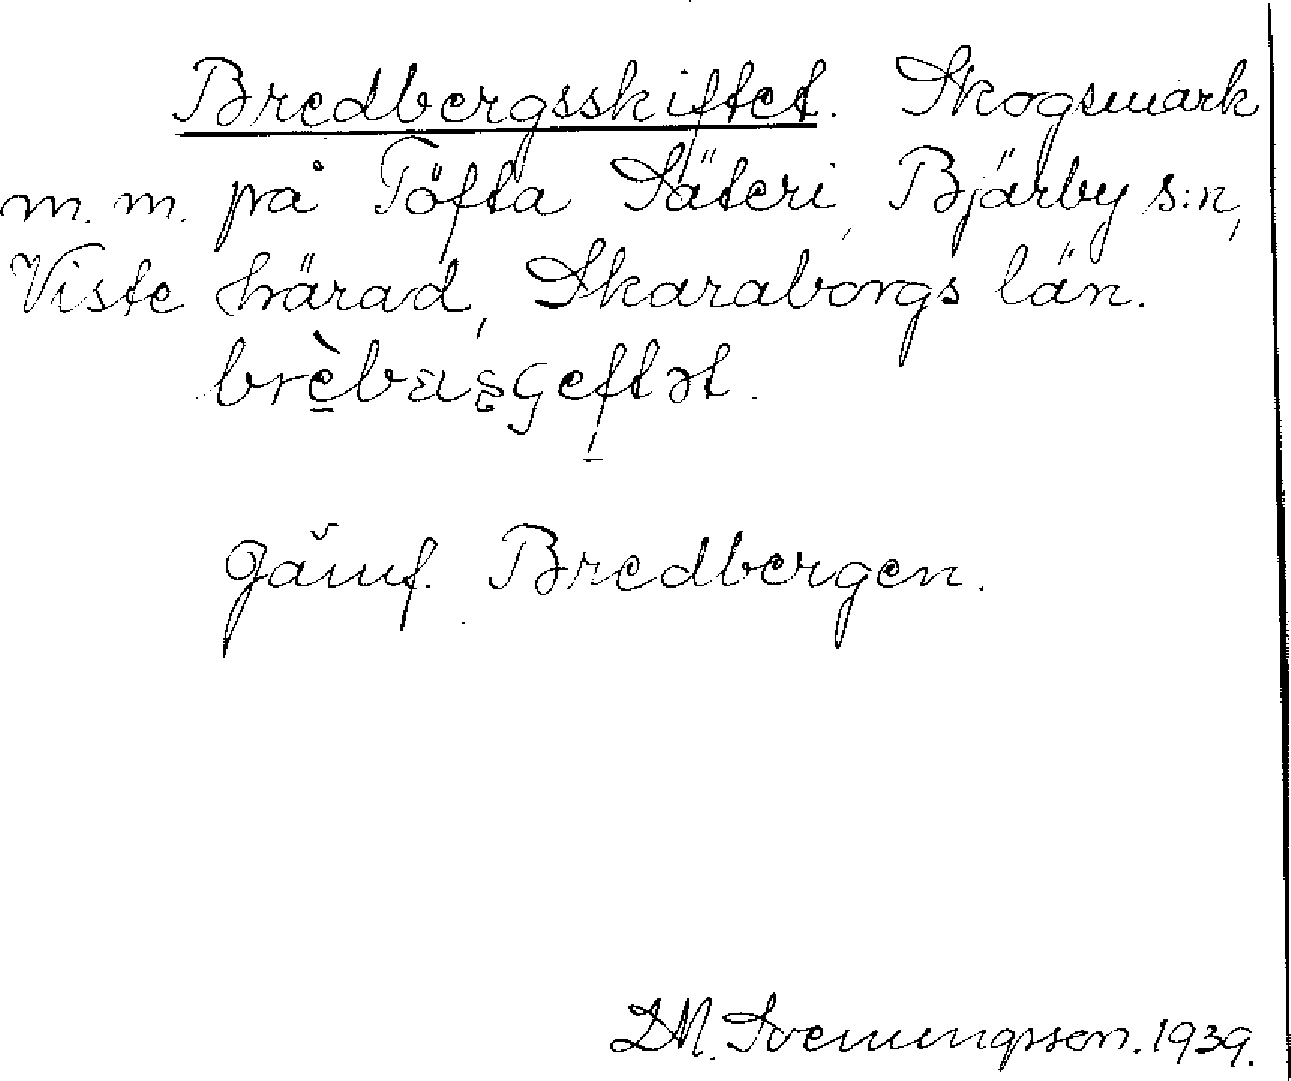 Bredbergsskiftet. Skogsmark
m.m. på Töfta Säteri, Bjärby s:n,
Viste härad, Skaraborgs län.
Jämf. Bredbergen.
D.M. Svenningsson. 1939.